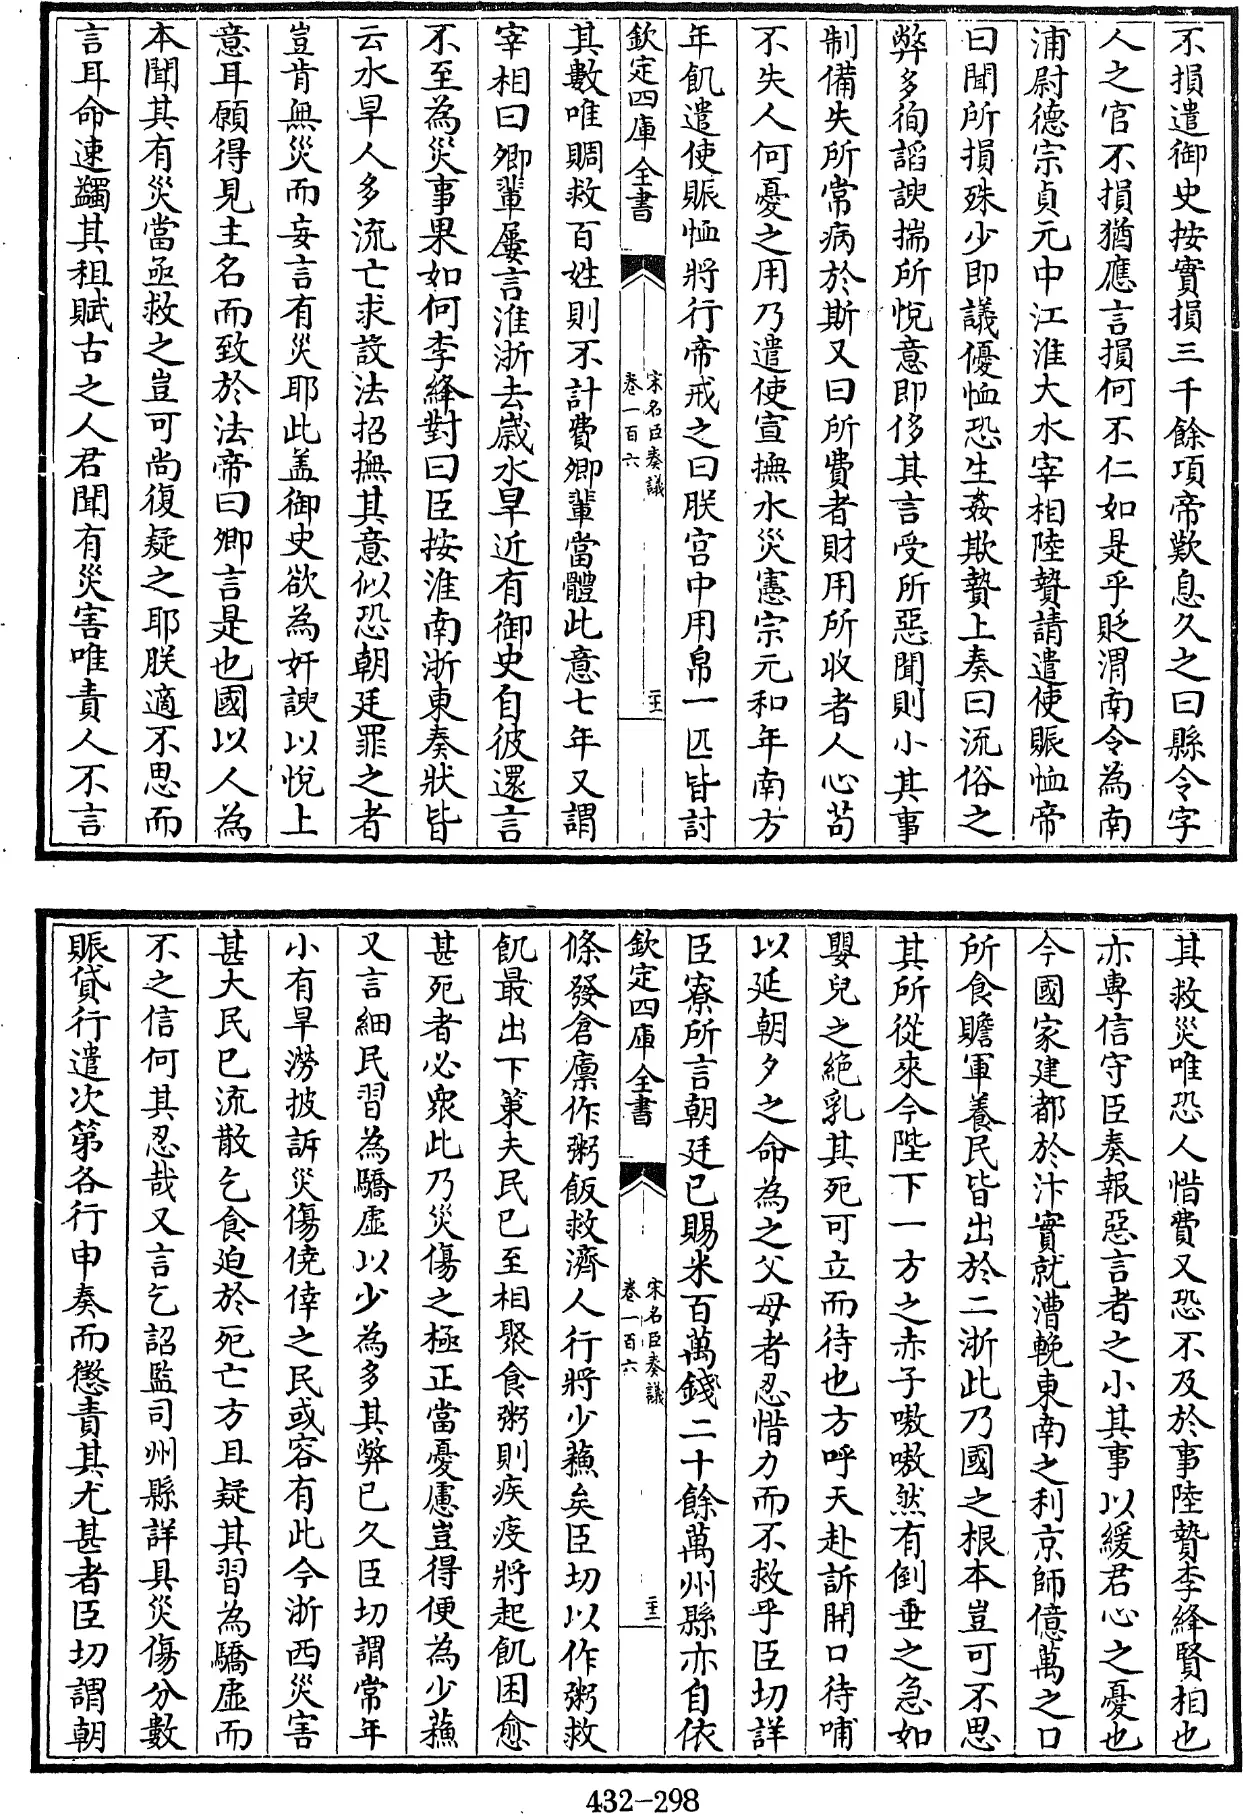 不損遣御史按實損三千餘項帝歎息久之曰縣令字
人之官不損猶應言損何不仁如是乎貶渭南令為南
浦尉德宗貞元中江淮大水宰相陸贄請遣使賑恤帝
曰聞所損殊少即議優恤恐生姦欺贄上奏曰流俗之
弊多徇諂諛揣所悅意即侈其言受所惡聞則小其事
制備失所常病於斯又曰所費者財用所收者人心茍
不失人何憂之用乃遣使宣撫水災憲宗元和年南方
年飢遣使賑恤將行帝戒之曰朕宫中用帛一匹皆討
欽定四庫全書
宋名臣奏議
卷一百六
二十一
其數唯賙救百姓則不計費卿輩當體此意七年又謂
宰相曰卿輩屢言淮浙去歲水旱近有御史自彼還言
不至為災事果如何李絳對曰臣按淮南浙東奏狀皆
云水旱人多流亡求設法招撫其意似恐朝廷罪之者
豈肯無災而妄言有災耶此盖御史欲為奸諛以悅上
意耳願得見主名而致於法帝曰卿言是也國以人為
本聞其有災當亟救之豈可尚復疑之耶朕適不思而
言耳命速蠲其租賦古之人君聞有災害唯責人不言
其救災唯恐人惜費又恐不及於事陸贄李絳賢相也
亦専信守臣奏報惡言者之小其事以緩君心之憂也
今國家建都於汴實就漕輓東南之利京師億萬之口
所食贍軍養民皆出於二浙此乃國之根本豈可不思
其所從來今陛下一方之赤子嗷嗷然有倒垂之急如
嬰兒之絶乳其死可立而待也方呼天赴訴開口待哺
以延朝夕之命為之父母者忍惜力而不救乎臣切詳
臣寮所言朝廷已賜米百萬錢二十餘萬州縣亦自依
欽定四庫全書
宋名臣奏議
卷一百六
二十二
條發倉廪作粥飯救濟人行將少蘓矣臣切以作粥救
飢最出下策夫民已至相聚食粥則疾疫將起飢困愈
甚死者必衆此乃災傷之極正當憂慮豈得便為少蘓
又言細民習為驕虚以少為多其弊已久臣切謂常年
小有旱澇披訴災傷僥倖之民或容有此今浙西災害
甚大民已流散乞食迫於死亡方且疑其習為驕虚而
不之信何其忍哉又言乞詔監司州縣詳具災傷分數
賑貸行遣次第各行申奏而懲責其尤甚者臣切謂朝
432-298